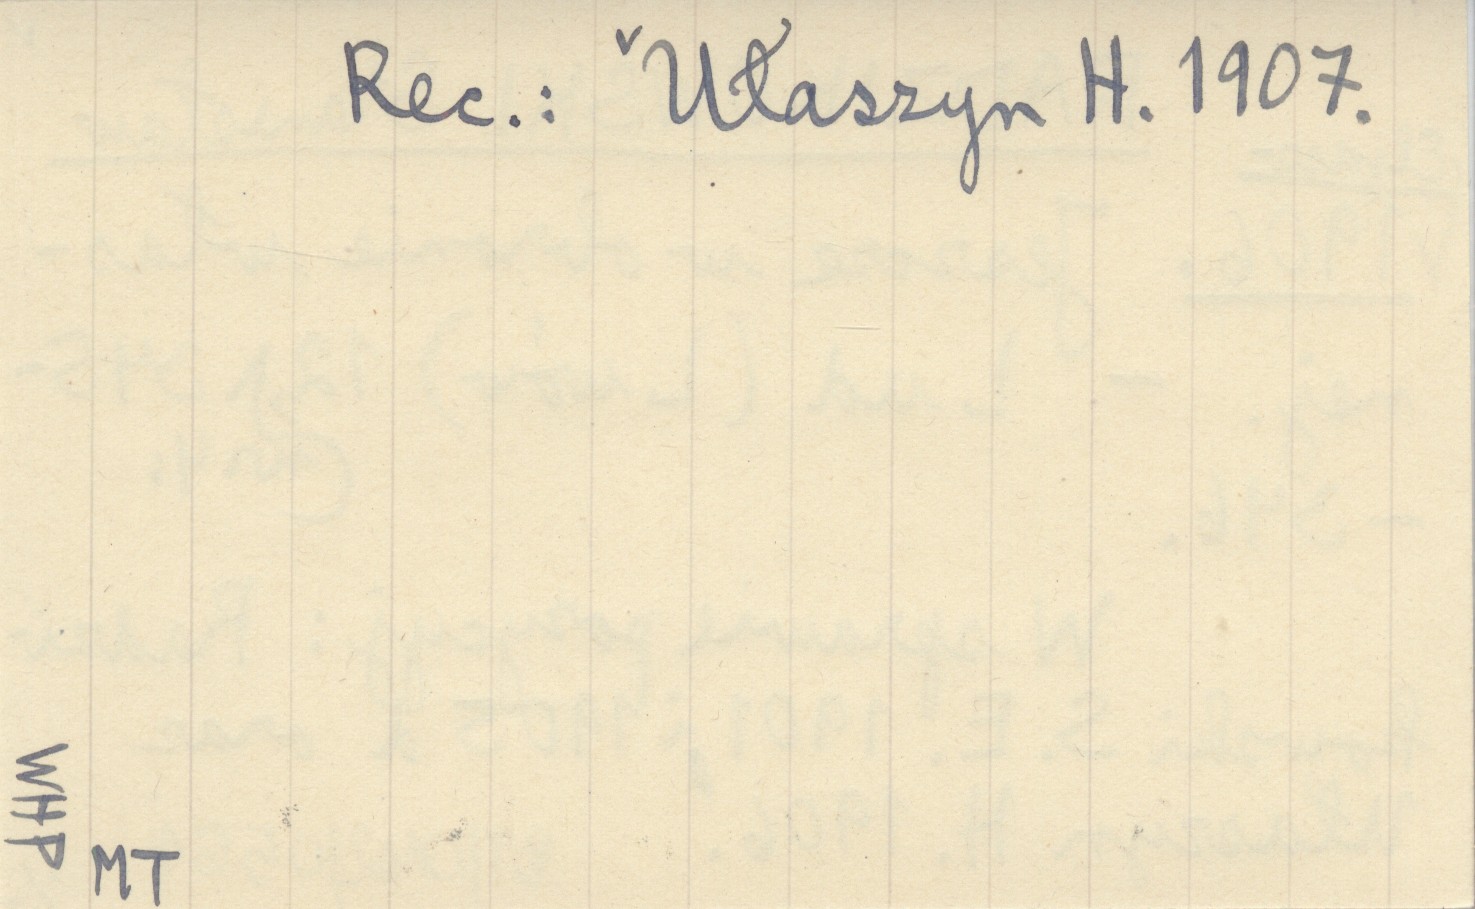 Rec.: ˅Ułaszyn H. 1907.
WHP
MT